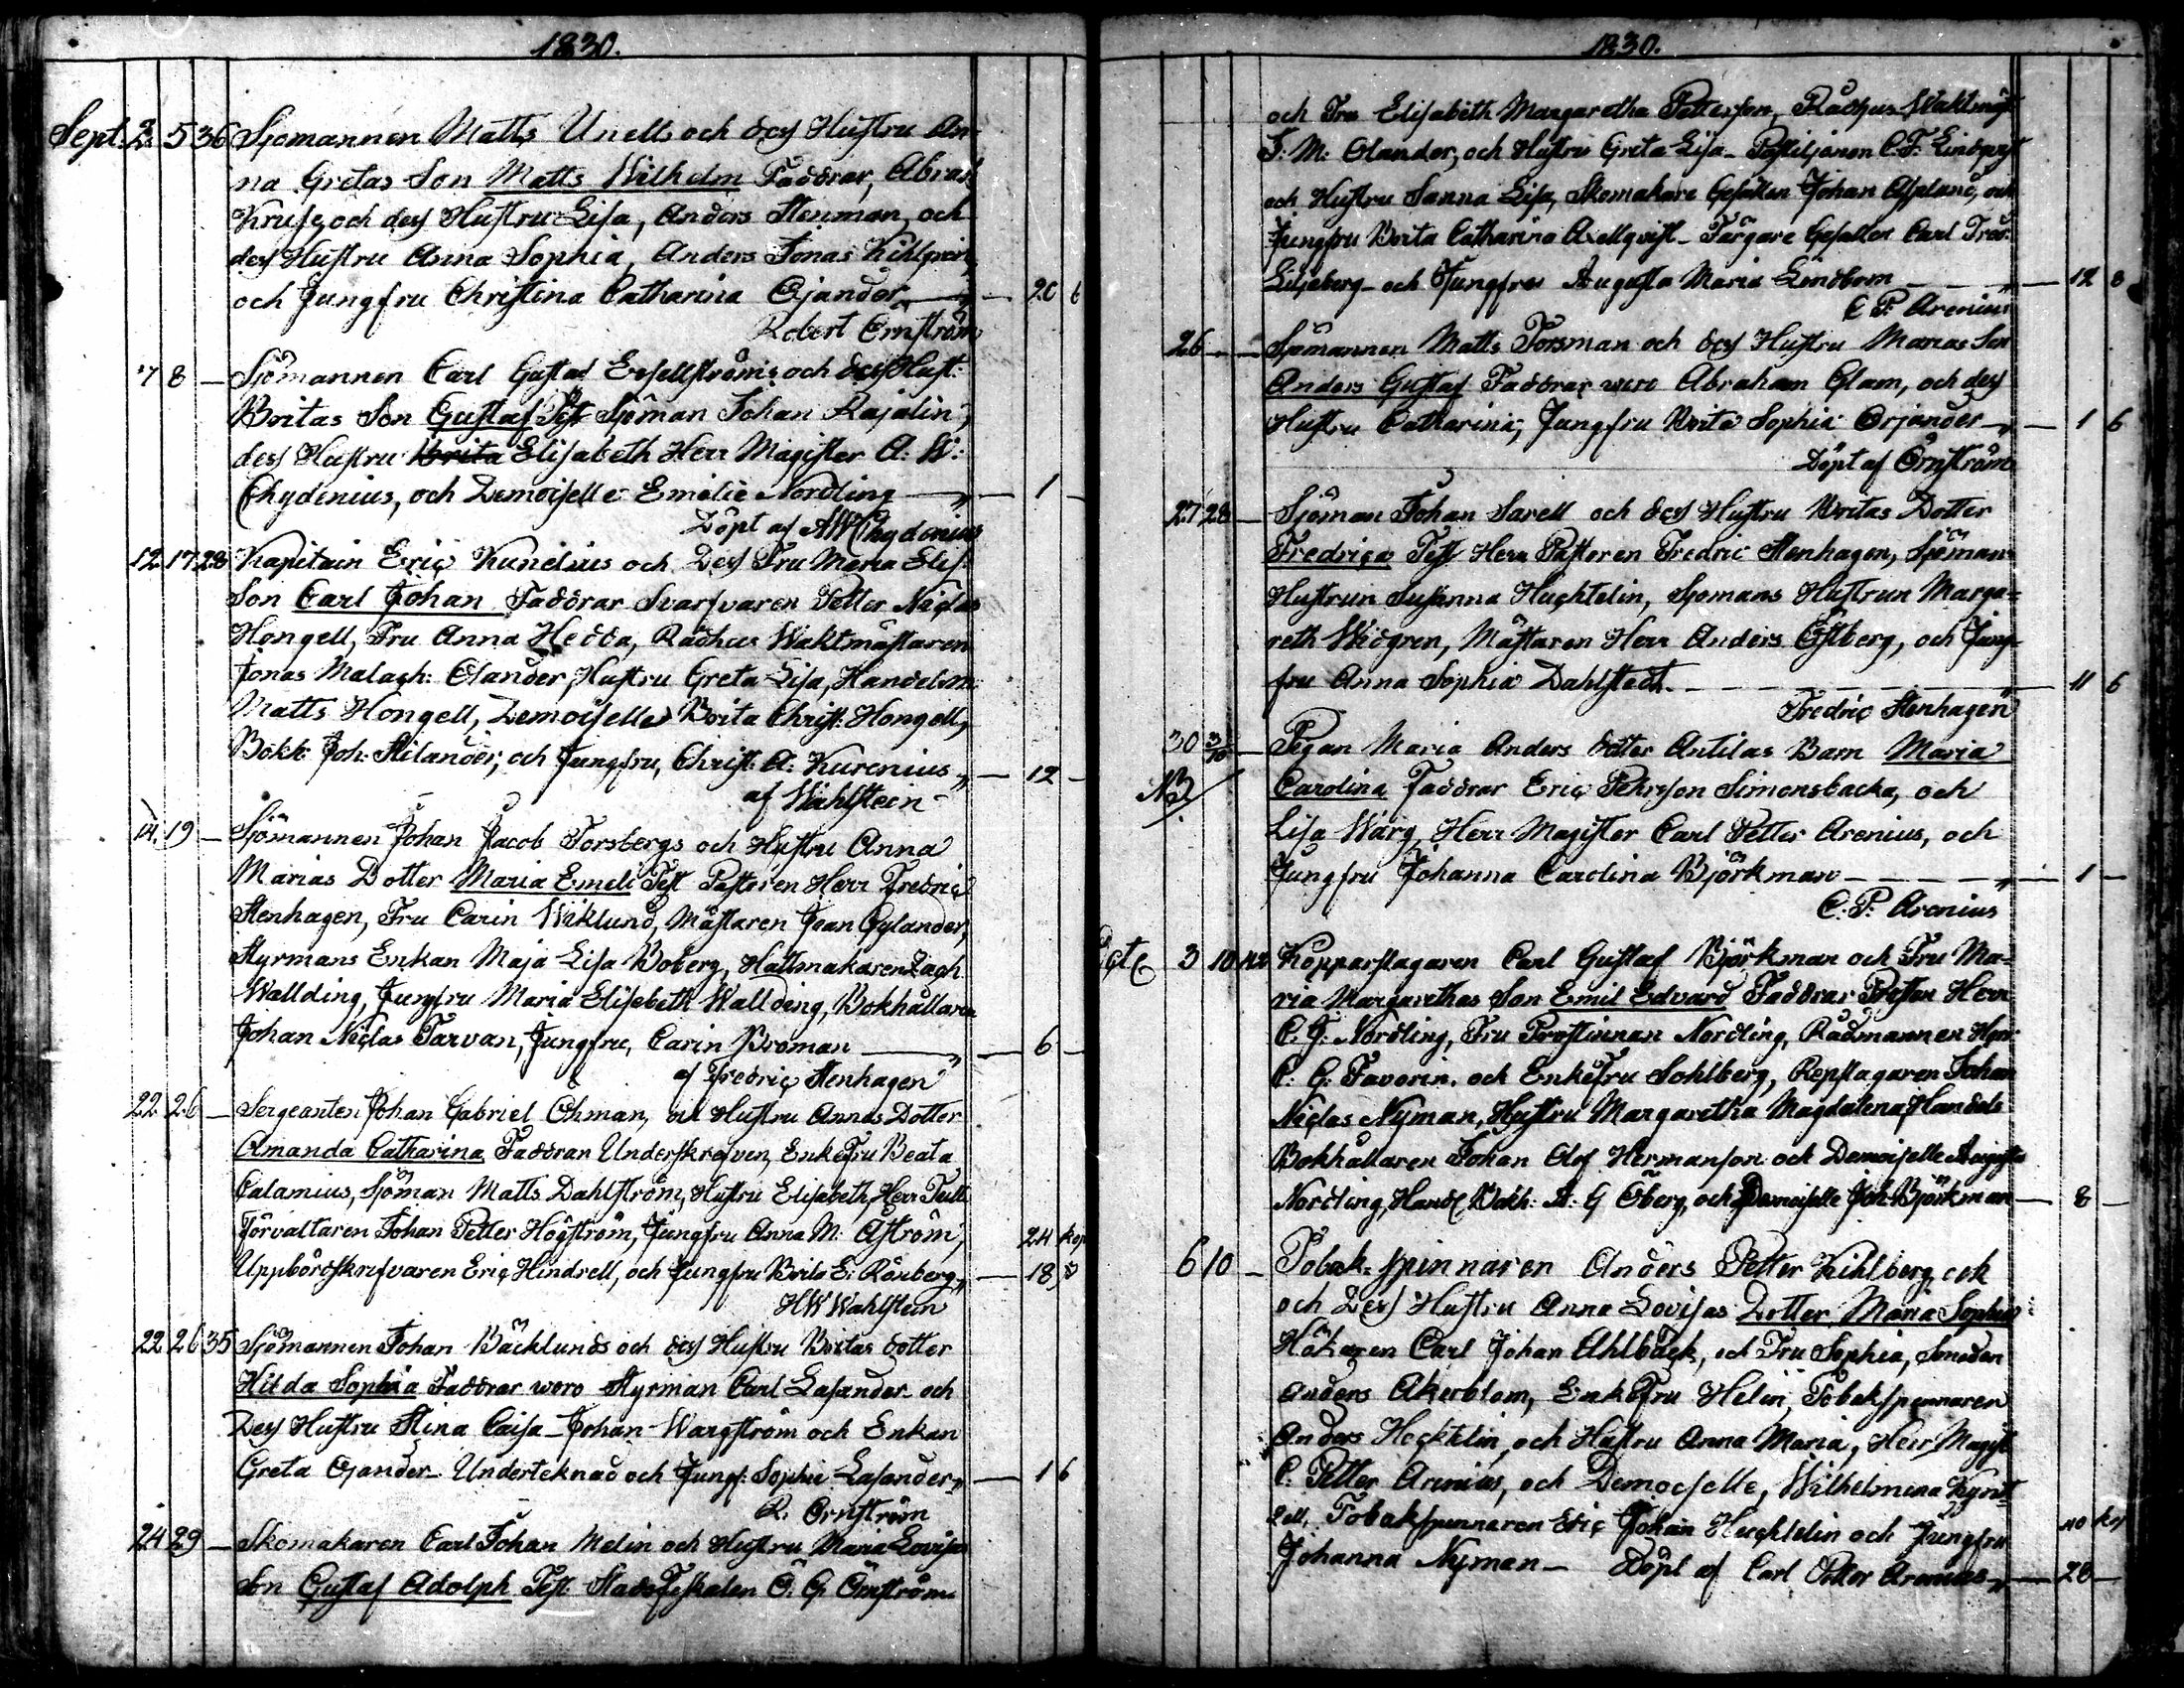 1830.
Sept. 2. 5 36 Sjömannen Matts Unells och dess Hustru An-
na Gretas Son Matts Wilhelm Faddrar, Abrah
Kruse, och dess Hustru Lisa, Anders Steuman, och
dess Hustru Anna Sophia, Anders Jonas Kihlgren,
och Jungfru Christina Catharina Ojander — 20 6
Robert Örnström
7 8 — Sjömannen Carl Gustaf Esselströms och dess Hust:
Britas Son Gustaf Test Sjöman Johan Rajalin,
dess Hustru Brita Elisabeth Herr Magister A: W:
Chydenius, och Demoiselle Emelie Nordling — 1 —
Döpt af AW Chydenius
12 17 28 Kapitain Eric Kunelius och Dess Fru Maria Elis:
Son Carl Johan Faddrar Svarfvaren Petter Niclas
Hongell, Fru Anna Hedda, Rådhus Waktmästaren
Jonas Malach: Olander, Hustru Greta Lisa, Handelsm:
Matts Hongell, Demoiselle Brita Christ: Hongell,
Bokh: Joh: Kilander, och Jungfru, Christ: A: Kurenius — 12 —
af Wahlstein
14 19 — Sjömannen Johan Jacob Forsbergs och Hustru Anna
Marias Dotter Maria Emeli Test Pastoren Herr Fredric
Stenhagen, Fru Carin Wiklund, Mästaren Joan Gylander,
Styrmans Enkan Maja Lisa Boberg, Hattmakaren Zach
Wallding, Jungfru Maria Elisabeth Wallding, Bokhållaren
Johan Niclas Tarvan, Jungfru, Carin Broman — 6 —
af Fredric Stenhagen
22 26 — Sergeanten Johan Gabriel Öhman, och Hustru Annas Dotter
Amanda Catharina Faddran Underskrefven, EnkeFru Beata
Calamius, Sjöman Matts Dahlström, Hustru Elisabeth, Herr Tull
Förvaltaren Johan Petter Högström, Jungfru Anna M: Åström, 24 kop
Uppbördskrifvaren Eric Hindrell, och Jungfru Brita E: Rönberg — 18
HW Wahlstein
22 26 35 Sjömannen Johan Bäcklunds och dess Hustru Britas dotter
Hilda Sophia Faddrar woro Styrman Carl Lasander och
Dess Hustru Stina Caisa — Johan Wargström och Enkan
Greta Ojander — Underteknad och Jungf: Sophie Lasander — 1 6
R. Örnström
24 29 — Skomakaren Carl Johan Melin och Hustru Maria Lovisas
Son Gustaf Adolph Test StadsFiskalen O: G: Örnström
1830.
och Fru Elisabeth Margaretha Petterson, Rådhus Waktmäst
J: M: Olander, och Hustru Greta Lisa — Postiljonen C: F: Lindqvist
och Hustru Sanna Lisa, Skomakare Gesällen Johan Asplund, och
Jungfru Brita Catharina Axellqvist — Färgare Gesällen Carl Fred:
Liljeberg — och Jungfru Augusta Maria Lindbom — 12 8
C P: Arenius
26 — — Sjömannen Matts Forsman och dess Hustru Marias Son
Anders Gustaf Faddrar woro Abraham Glam, och dess
Hustru Catharina, Jungfru Brita Sophia Örjander — 1 6
Döpt af Örnström
27 28 — Sjöman Johan Sarell och dess Hustru Britas Dotter
Fredrica Test Herr Pastoren Fredric Stenhagen, Sjömans
Hustrun Susanna Huchtelin, Sjomans Hustrun Marga-
reth Widgren, Mästaren Herr Anders Östberg, och Jung-
fru Anna Sophia Dahlstedt — 11 6
Fredric Stenhagen
30 3/10 — Pigan Maria Anders dotter Antilas Barn Maria
NB Carolina Faddrar Eric Pehrsson Simonsbacka, och
Lisa Warg, Herr Magister Carl Petter Arenius, och
Jungfru Johanna Carolina Björkman — 1 —
C: P: Arenius
3 10 42 Kopparslagaren Carl Gustaf Björkman och Fru Ma-
ria Margarethas Son Emil Edvard Faddrar Prosten Herr
C. J: Nordling, Fru Prostinnan Nordling, Rådmannen Herr
C: G: Favorin, och EnkeFru Sohlberg, Repslagaren Johan
Niclas Nyman, Hustru Margaretha Magdalena, Handels
Bokhållaren Johan Olof Hermanson och Demoiselle Augusta
Nordling, Handl Bokh: A: G Öberg, och Demoiselle Joh: Björkman — 8 —
6 10 — Tobak-spinnaren Anders Petter Kihlberg ock
och Dess Hustru Anna Lovisas Dotter Maria Sophia
Hökaren Carl Johan Ahlbäck, och Fru Sophia, Smeden
Anders Åkerblom, EnkeFru Helin, Tobakspinnaren
Anders Hecktelin, och Hustru Anna Maria, Herr Magist
C: Petter Arenius, och Demoiselle, Wilhelmina Kynt-
zell, Tobakspinnaren Eric Johan Huchtelin och Jungfru 40 kop
Johanna Nyman — Döpt af Carl Petter Arenius — 28 —